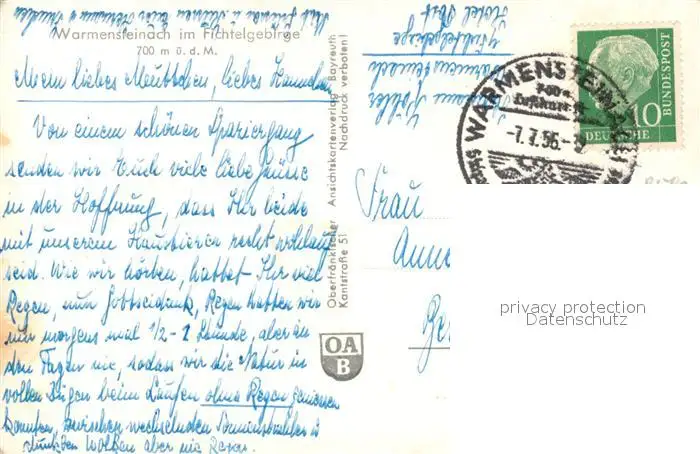 Warmensteinach im Fichtelgebirge
700 m ü. d. M.
Mein liebes Meuttchen, liebes Hannchen
Von einem schönen Spaziergang
senden wir Euch viele liebe Grüsse
in der Hoffnung, dass Ihr beide
mit unserem Haustieren recht wohlauf
seid. Wie wir hörten, hattet Ihr viel
Regen, nun Gottseidank, Regen hatten wir
nur morgens mal 1/2 - 1 Stunde, aber in
den Tagen nie, sodass wir die Natur in
vollen Zügen beim Laufen ohne Regen geniessen
konnten, zwischen wechselnden Sonnenstrahlen u
dunklen Wolken aber nie Regen.
Oberfränkischer Ansichtskartenverlag Bayreuth
Kantstraße 51 Nachdruck verboten!
OA
B
Hotel Post
Fichtelgebirge
Warmensteinach
Köhler
WARMENSTEINACH
700 m
Luftkurort
-7.7.56.-
10
DEUTSCHE
BUNDESPOST
Frau
Anne
Ge
privacy protection
Datenschutz